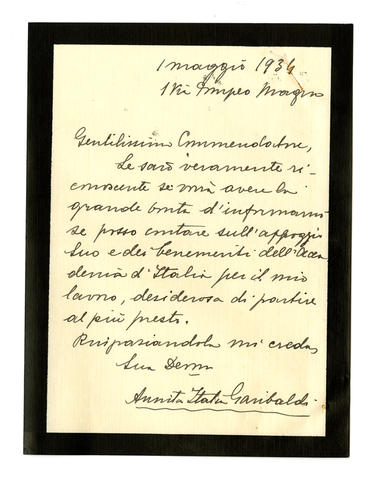 1 maggio 1934
1 Via Pompeo Magno
Gentilissimo Commendatore,
Le sarò veramente ri-
conoscente se vorrà avere la
grande bontà d'informarmi
se posso contare sull'appoggio
Suo e dei benemeriti dell'Acca
demia d'Italia per il mio
lavoro, desiderosa di partire
al più presto.
Ringraziandola mi creda
Sua Dev.ma
Annita Italia Garibaldi